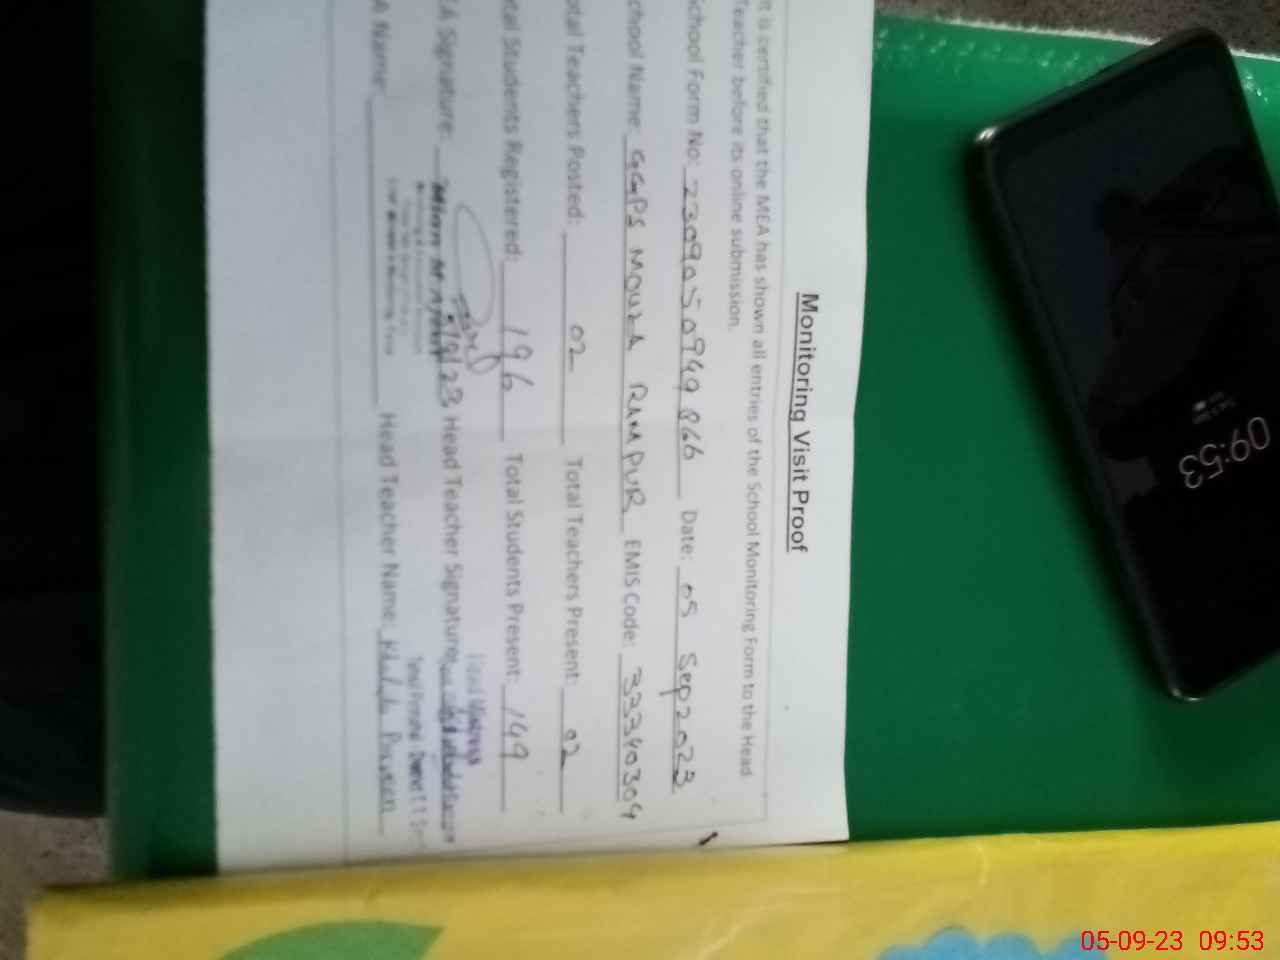 Monitoring Visit Proof
It is certified that the MEA has shown all entries of the School Monitoring Form to the Head
Teacher before its online submission.
School Form No: 230905 0949 866 Date: 05 Sep 2023
chool Name: GGPS MOUZA RAMPUR EMIS Code: 33340304
otal Teachers Posted: 02 Total Teachers Present: 02
tal Students Registered: 196 Total Students Present: 149
EA Signature: Head Teacher Signature
A Name: Head Teacher Name: Parveen
09:53
05-09-23 09:53